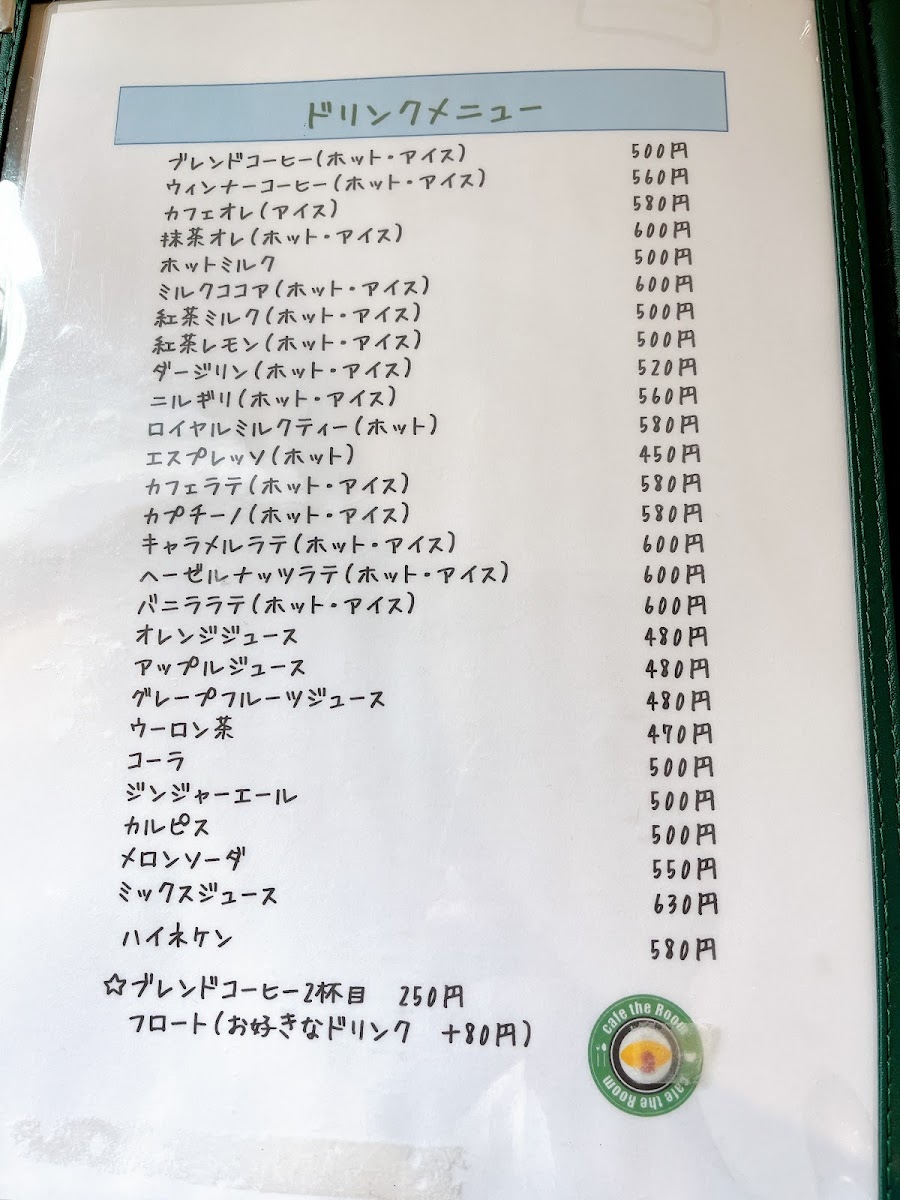 ドリンクメニュー
ブレンドコーヒー(ホット・アイス) 500円
ウィンナーコーヒー(ホット・アイス) 560円
カフェオレ(アイス) 580円
抹茶オレ(ホット・アイス) 600円
ホットミルク 500円
ミルクココア(ホット・アイス) 600円
紅茶ミルク(ホット・アイス) 500円
紅茶レモン(ホット・アイス) 500円
ダージリン(ホット・アイス) 520円
ニルギリ(ホット・アイス) 560円
ロイヤルミルクティー(ホット) 580円
エスプレッソ(ホット) 450円
カフェラテ(ホット・アイス) 580円
カプチーノ(ホット・アイス) 580円
キャラメルラテ(ホット・アイス) 600円
ヘーゼルナッツラテ(ホット・アイス) 600円
バニララテ(ホット・アイス) 600円
オレンジジュース 480円
アップルジュース 480円
グレープフルーツジュース 480円
ウーロン茶 470円
コーラ 500円
ジンジャーエール 500円
カルピス 500円
メロンソーダ 550円
ミックスジュース 630円
ハイネケン 580円
☆ブレンドコーヒー2杯目 250円
フロート(お好きなドリンク +80円)
cafe the Room
cafe the Room